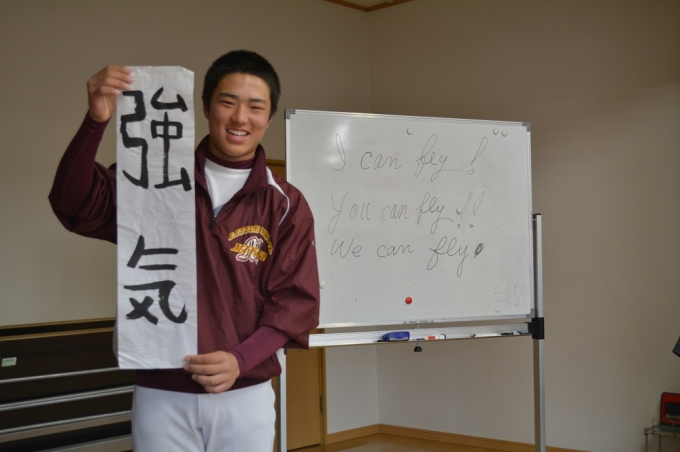 強気
I can fly!
You can fly!!
We can fly